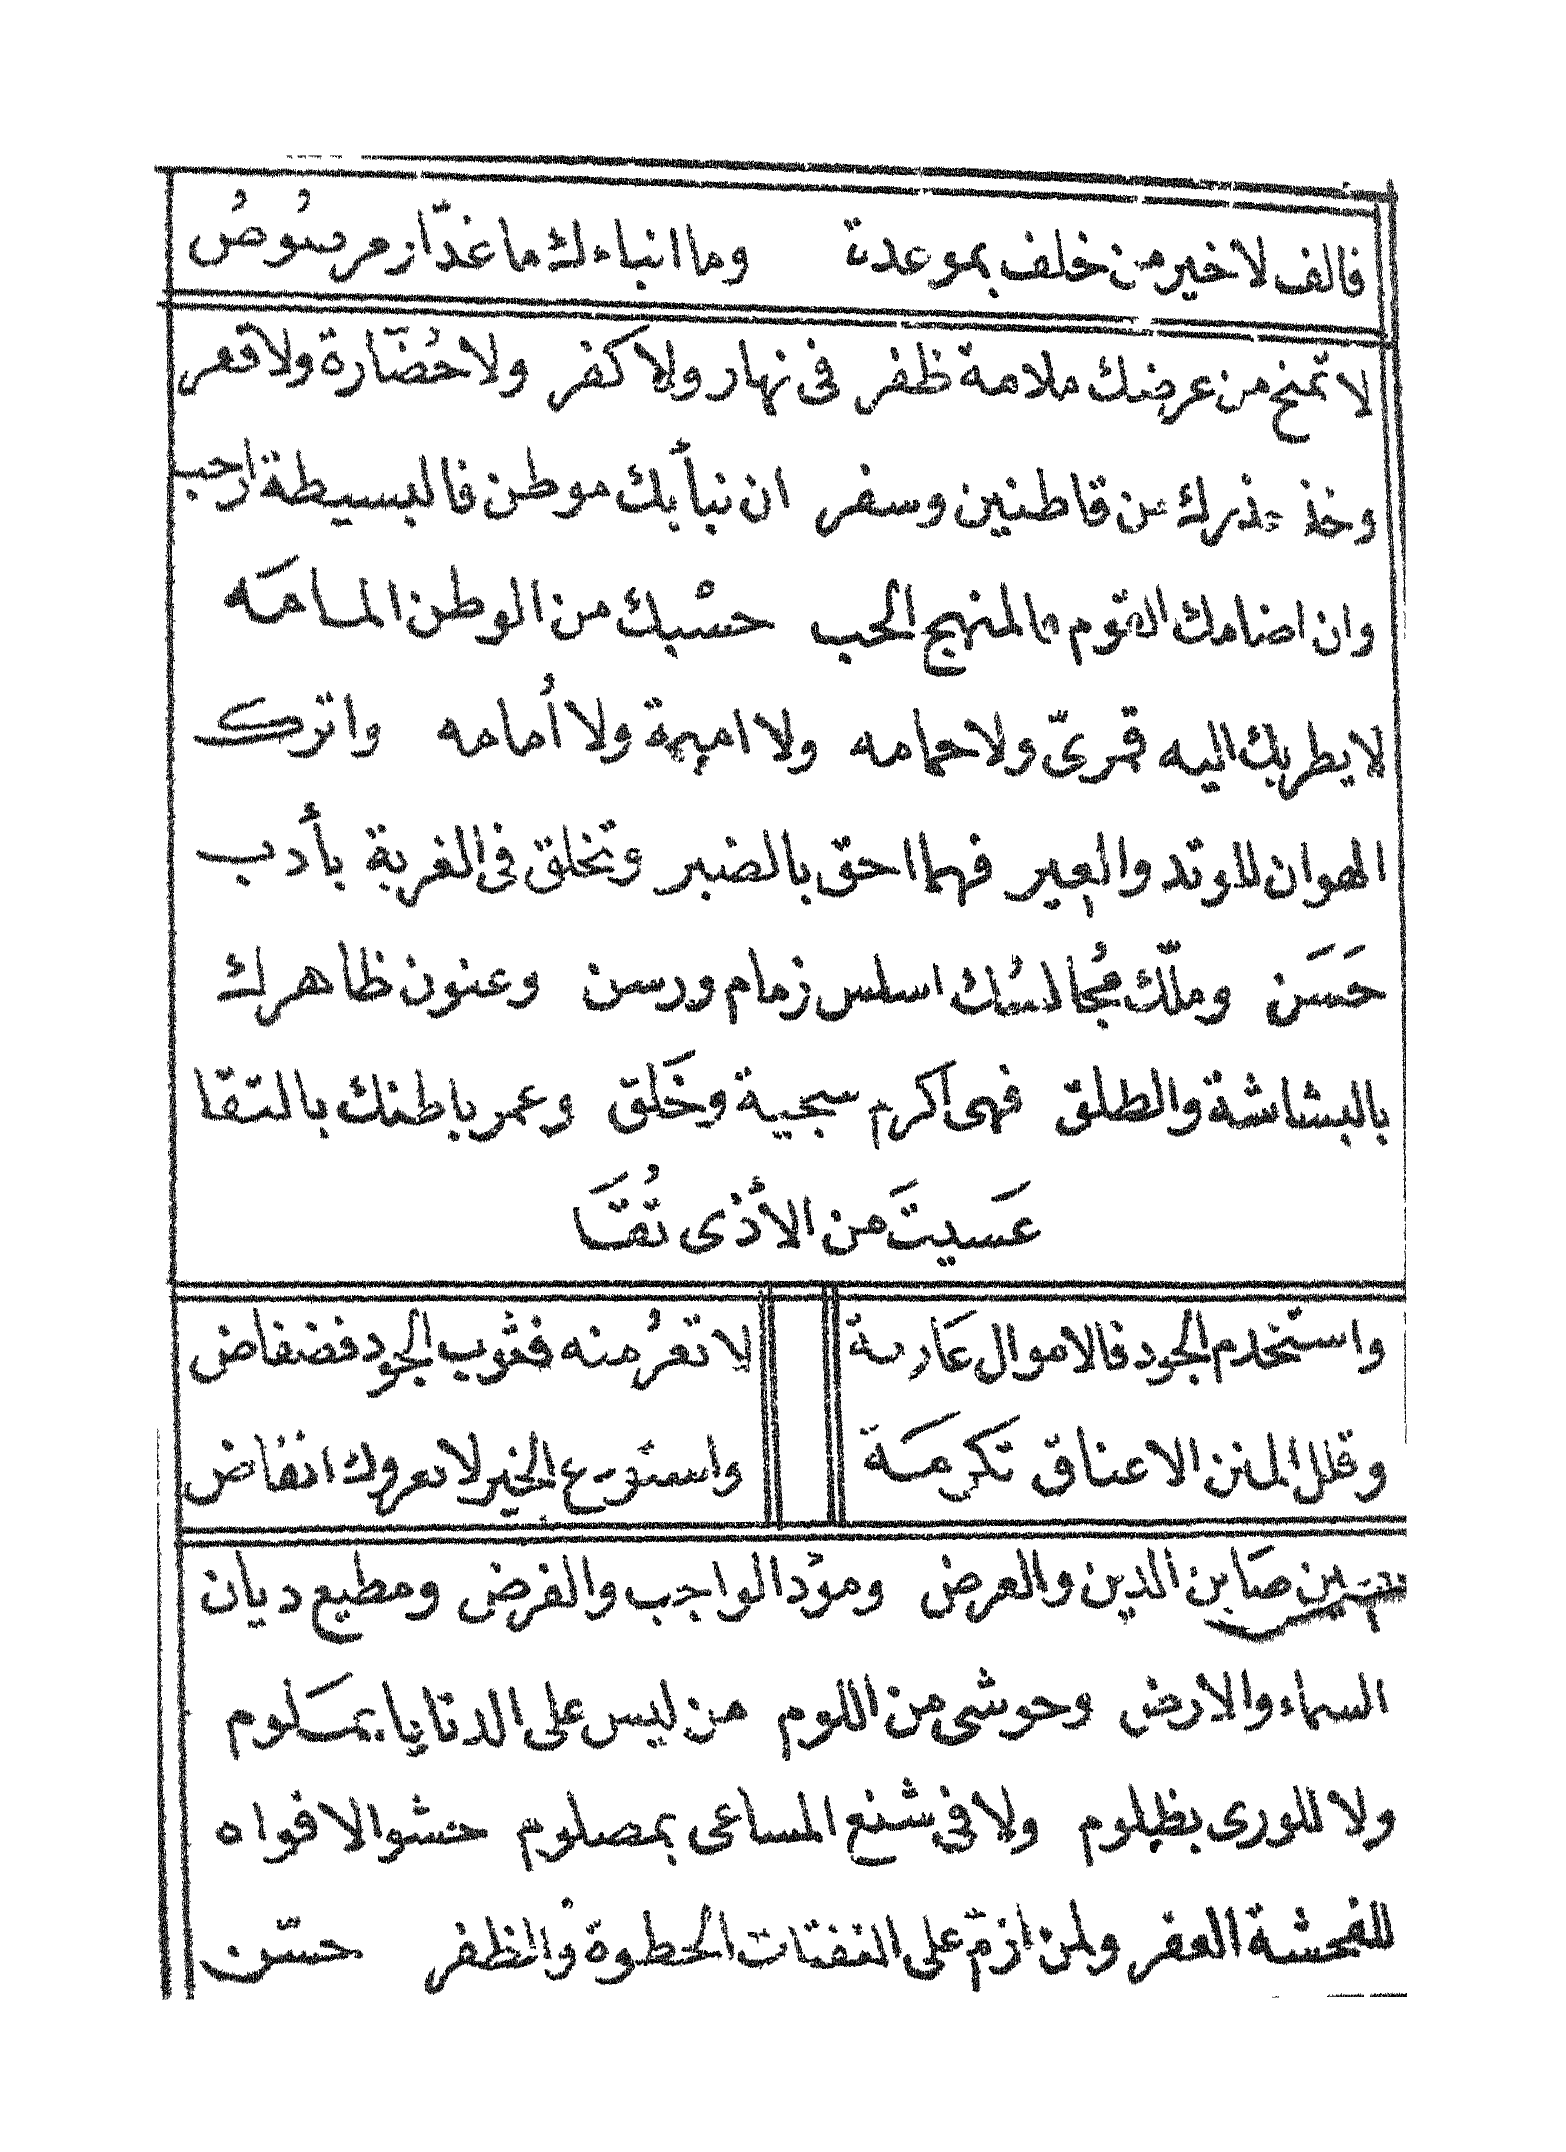 فالف لا خير من خلف بموعدة وما انباءك ما غدّار
لا تمنح من عرضك ملامة ظفر فى نهار ولا كفر ولا حُضّارة ولا قعر
وخذ حذرك من قاطنين وسفر ان نبأ بك موطن فالبسيطة ارحب
وان اضامك القوم فالمنهج الحب حسْبك من الوطن المسامَه
لا يطربك اليه قمرىّ ولا حمامه ولا اميمة ولا أُمامه واترك
الهوان للوتد والعير فهما احق بالضبر وتخلق فى الغربة بأدب
حَسَن وملّك مُجالسُك اسلس زمام ورسن وعنون ظاهرك
بالبشاشة والطلق فهى اكرم سجية وخَلق وعمر باطنك بالتقا
عَسيتَ من الأذى تُقَا
واستخدم الجود فالاموال عَارية لا تعرُ منه فثوب الجود فضفاض
وقلل المنن الاعناق تكرمَة الخير لا يعروك انفاض
صَاين الدين والعرض ومؤد الواجب والفرض ومطيع ديان
السماء والارض وحوشى من اللوم من ليس على الدنايا بمَلوم
ولا للورى بظلوم ولا فى شنع المساعى بمصلوم حشو الافواه
للفحشة العفر ولمن ازمّ على النفثات الحظوة والظفر حسّن